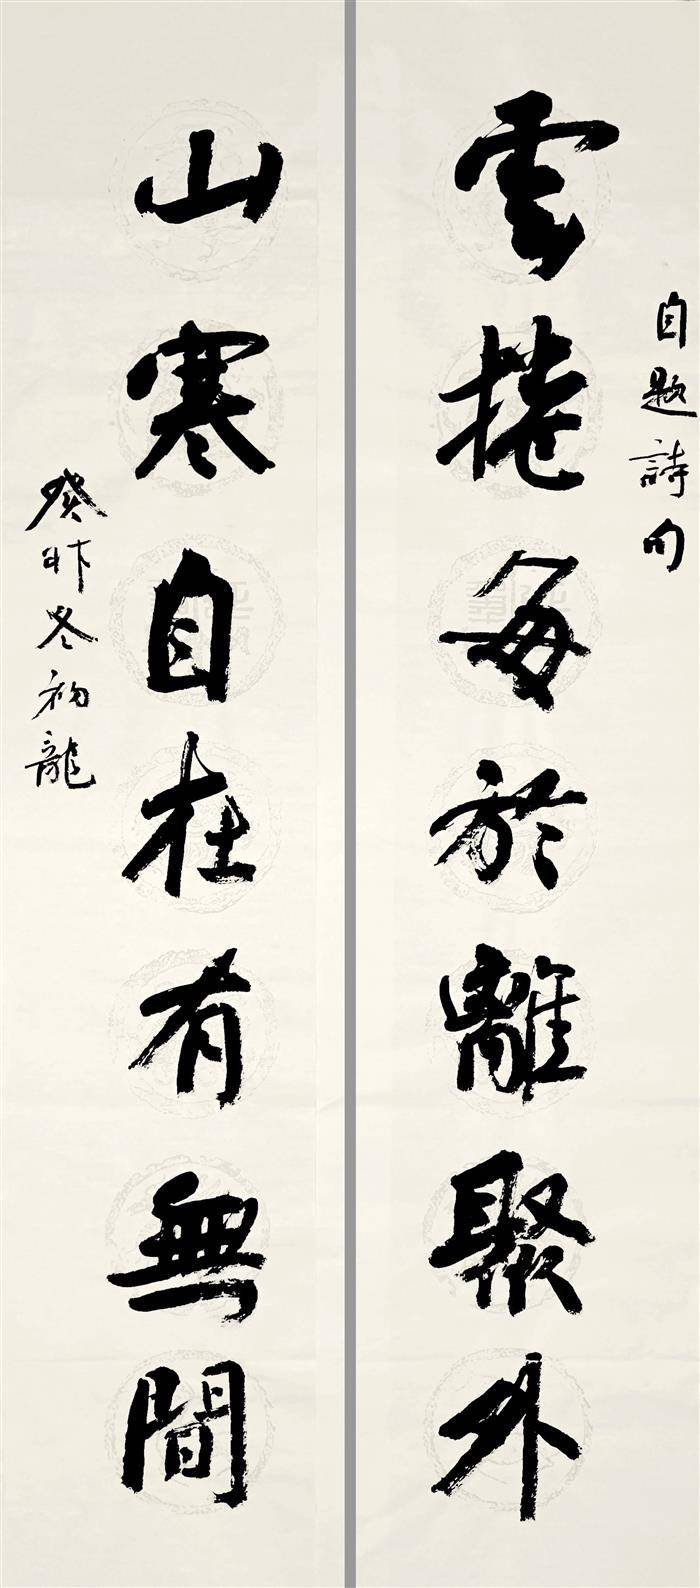 自题詩句
雲捲每於離聚外
山寒自在有無間
癸卯冬初龍